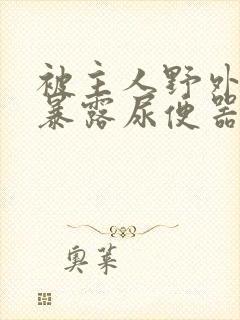 被主人野外
暴露尿便器
奥莱